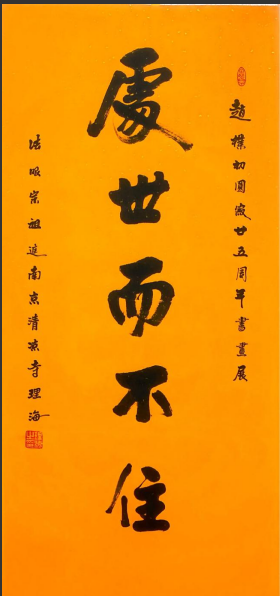 趙樸初圓寂廿五周年書畫展
處世而不住
法眼宗祖庭南京清凉寺理海